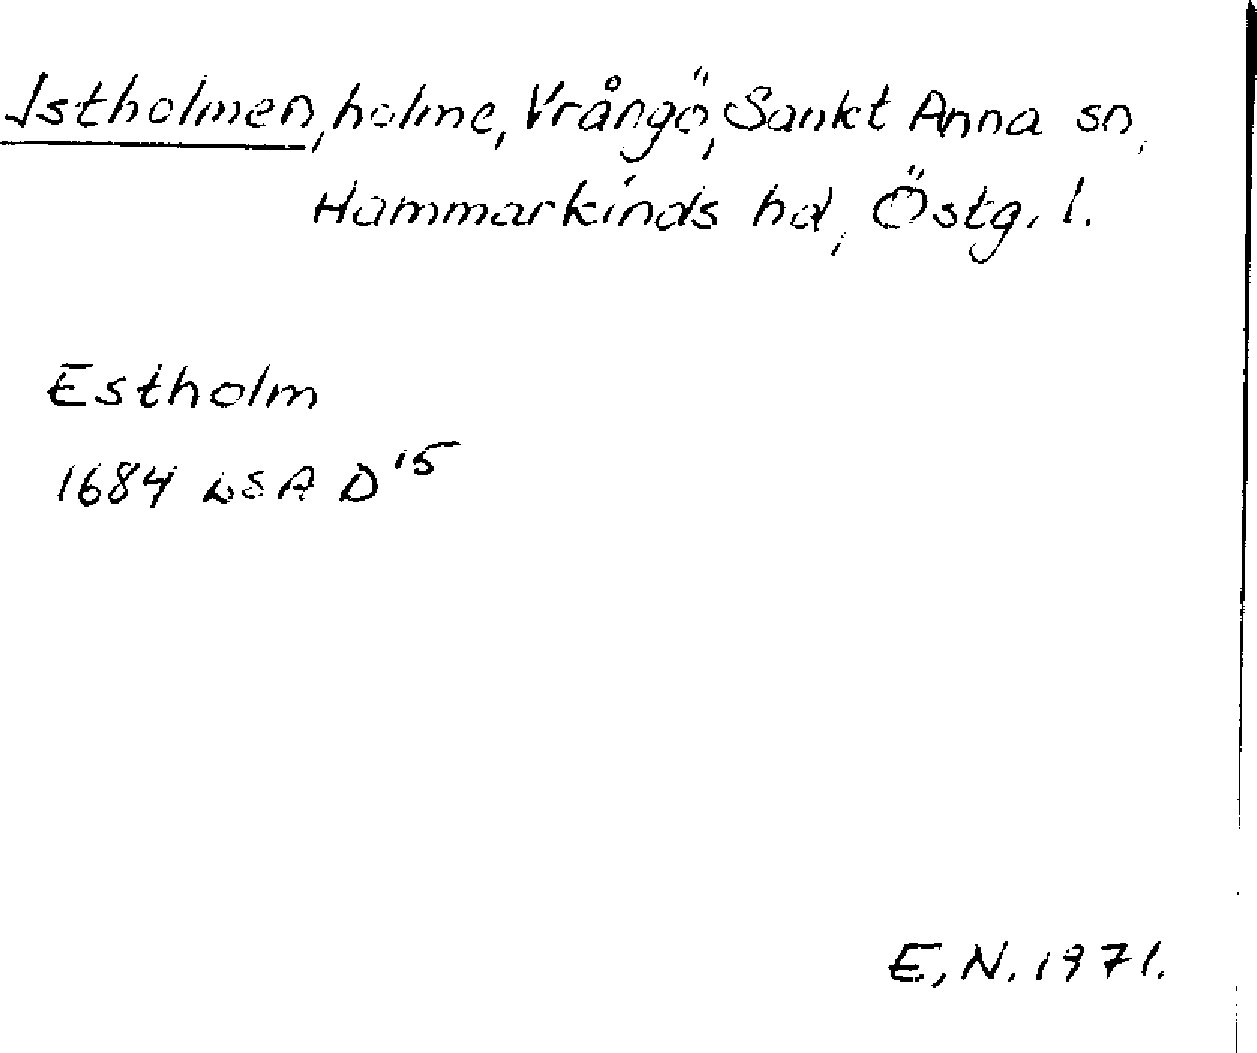 Istholmen, holme, Vrångö, Sankt Anna sn,
Hammarkinds hd, Östg. l.
Estholm
1684 LSA D 15
E, N. 1971.